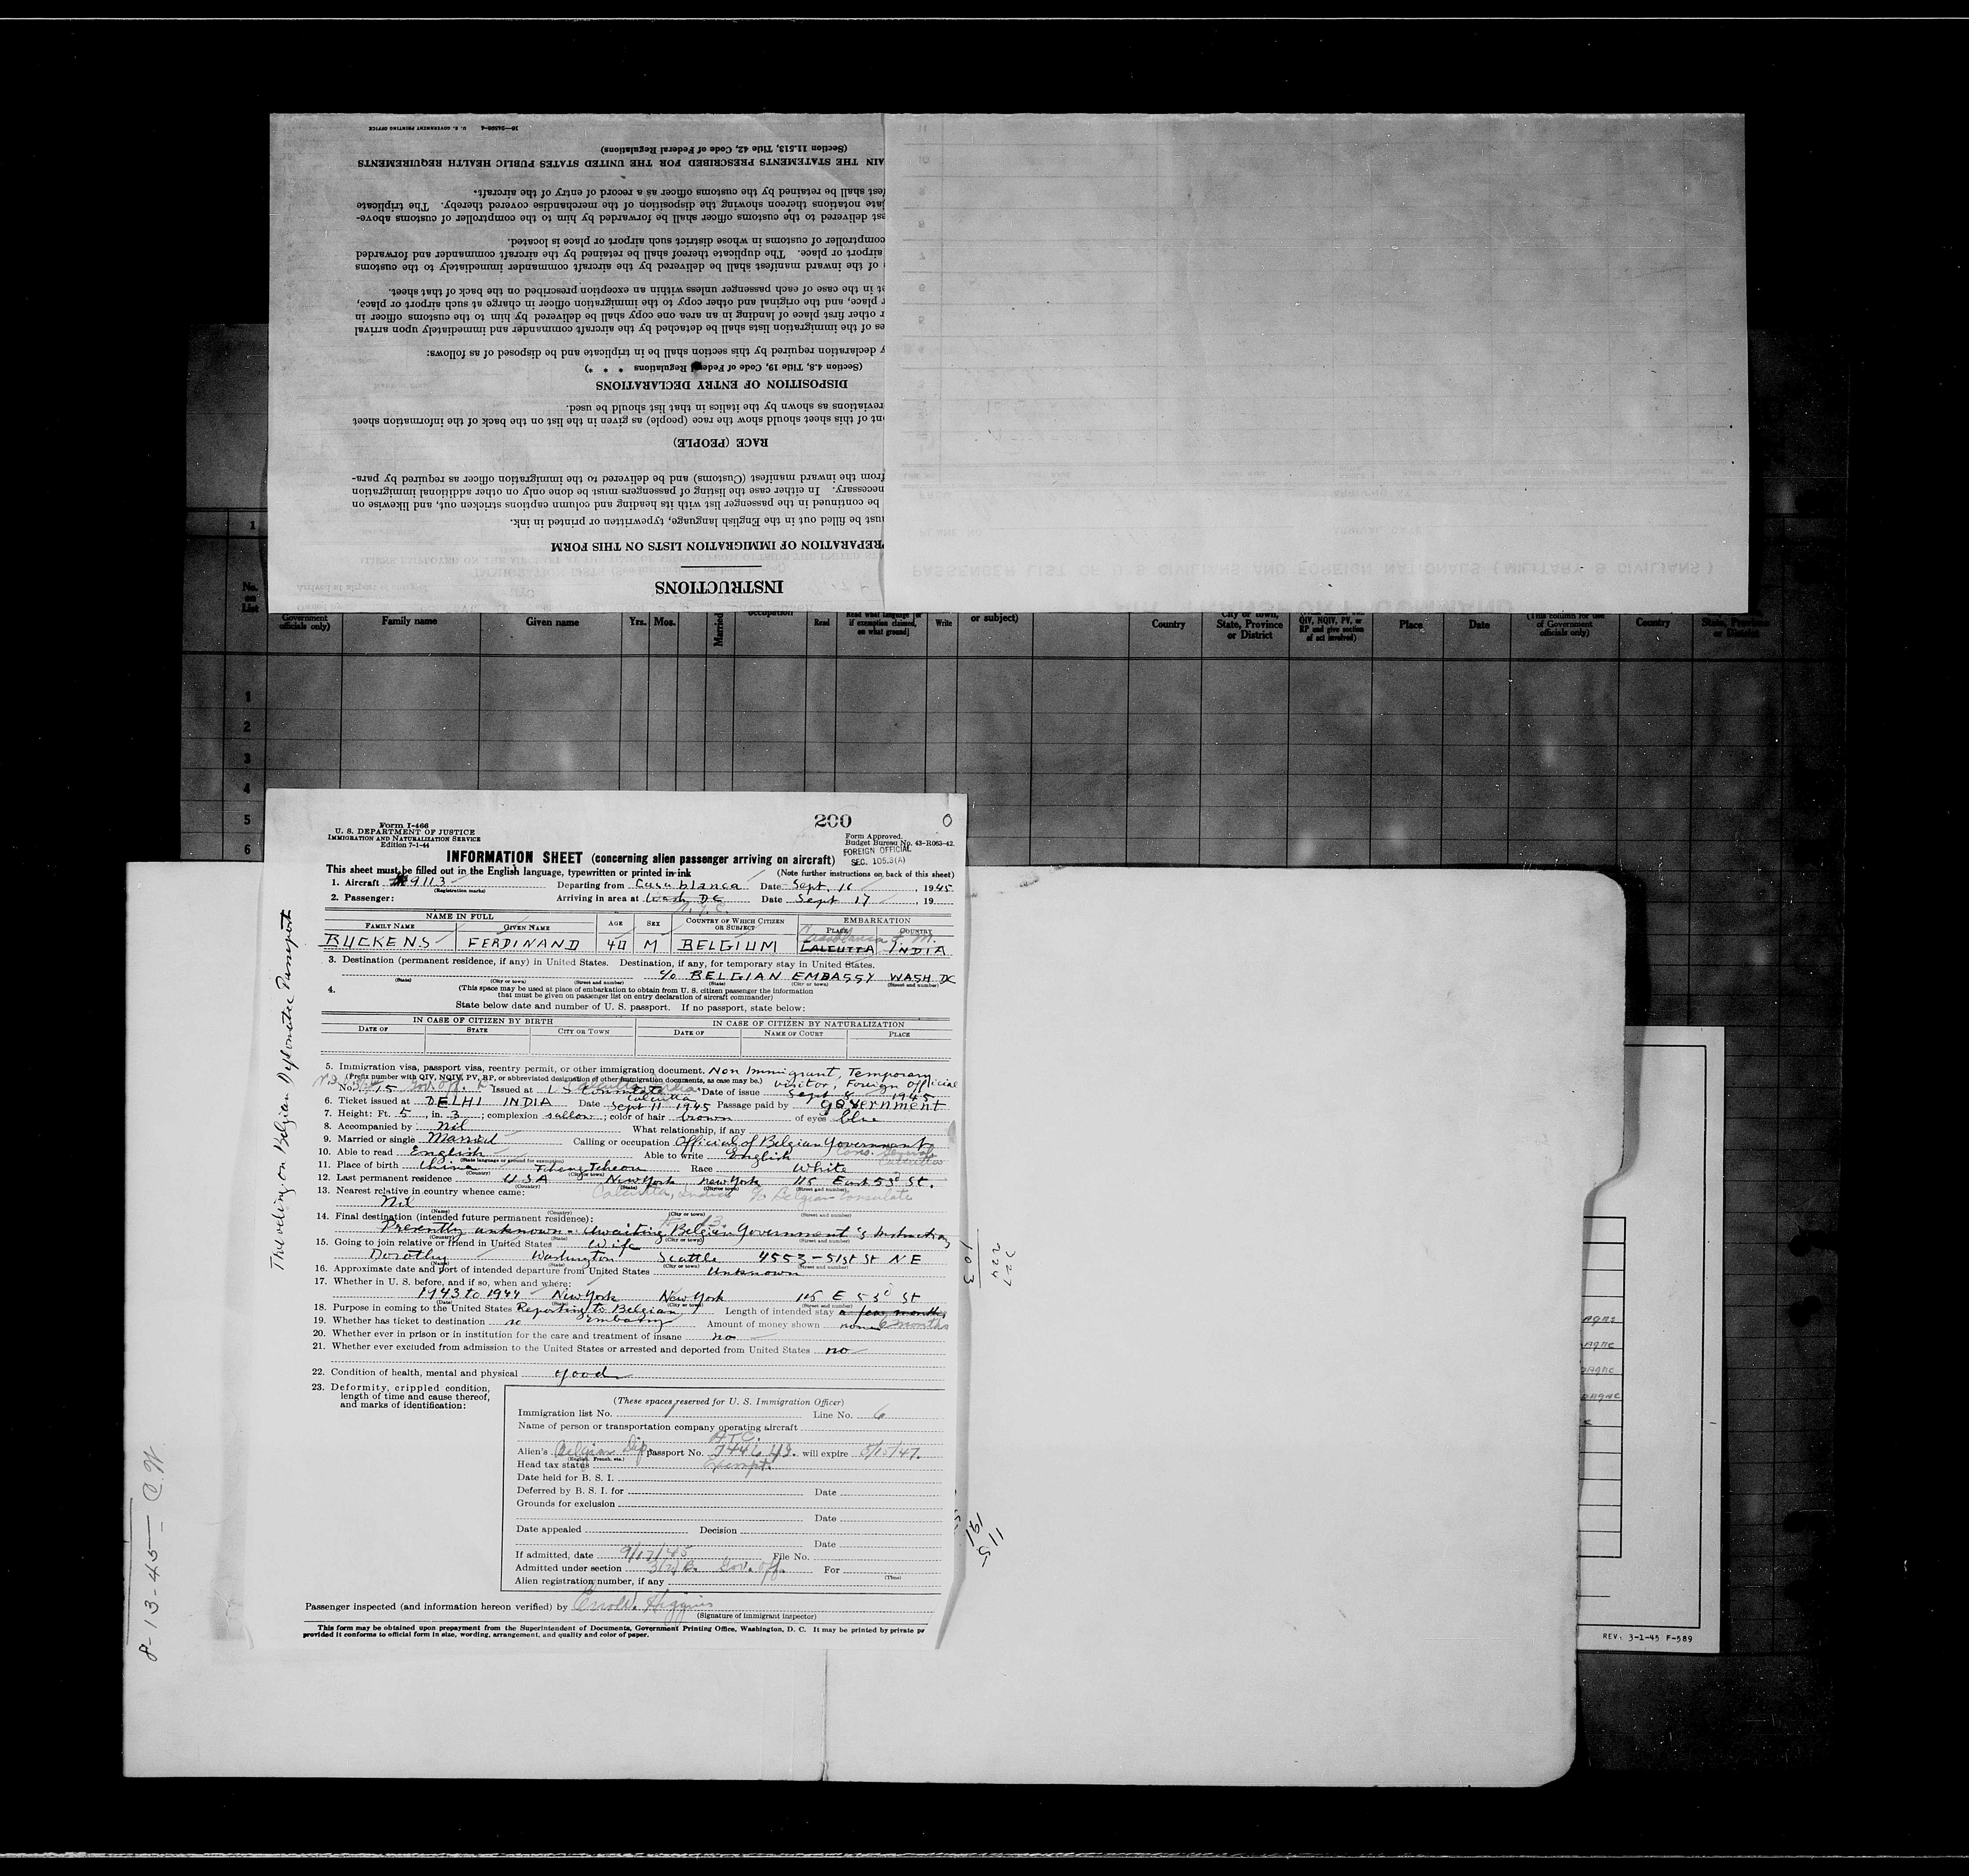 16—24566-4 U. S. GOVERNMENT PRINTING OFFICE
(Section 11.513, Title 42, Code of Federal Regulations)
AIN THE STATEMENTS PRESCRIBED FOR THE UNITED STATES PUBLIC HEALTH REQUIREMENTS
fest shall be retained by the customs officer as a record of entry of the aircraft.
iate notations thereon showing the disposition of the merchandise covered thereby. The triplicate
est delivered to the customs officer shall be forwarded by him to the comptroller of customs above-
comptroller of customs in whose district such airport or place is located.
airport or place. The duplicate thereof shall be retained by the aircraft commander and forwarded
of the inward manifest shall be delivered by the aircraft commander immediately to the customs
et in the case of each passenger unless within an exception prescribed on the back of that sheet.
r place, and the original and other copy to the immigration officer in charge at such airport or place,
r other first place of landing in an area one copy shall be delivered by him to the customs officer in
es of the immigration lists shall be detached by the aircraft commander and immediately upon arrival
y declaration required by this section shall be in triplicate and be disposed of as follows:
(Section 4.8, Title 19, Code of Federal Regulations * * *)
DISPOSITION OF ENTRY DECLARATIONS
reviations as shown by the italics in that list should be used.
nt of this sheet should show the race (people) as given in the list on the back of the information sheet
RACE (PEOPLE)
from the inward manifest (Customs) and be delivered to the immigration officer as required by para-
necessary. In either case the listing of passengers must be done only on other additional immigration
be continued in the passenger list with its heading and column captions stricken out, and likewise on
ust be filled out in the English language, typewritten or printed in ink.
REPARATION OF IMMIGRATION LISTS ON THIS FORM
INSTRUCTIONS
PASSENGER LIST OF U.S CIVILIANS AND FOREIGN NATIONALS (MILITARY & CIVILIANS)
No. on List
Government officials only) Family name Given name Yrs. Mos. Married occupation Read Read what language [or if exemption claimed, on what ground] Write or subject) Country City or town, State, Province or District QIV, NQIV, PV, or RP and give section of act involved) Place Date (This column for use of Government officials only) Country State, Province or District
1
1
2
3
4
5
6
Form I-466
U. S. DEPARTMENT OF JUSTICE
IMMIGRATION AND NATURALIZATION SERVICE
Edition 7-1-44
200 0
Form Approved.
Budget Bureau No. 43-R063-42.
FOREIGN OFFICIAL
SEC. 105.3(A)
INFORMATION SHEET (concerning alien passenger arriving on aircraft)
This sheet must be filled out in the English language, typewritten or printed in ink (Note further instructions on back of this sheet)
1. Aircraft 9113 Departing from Casablanca Date Sept. 16, 1945
(Registration marks)
2. Passenger: Arriving in area at Wash DC Date Sept 17, 19
N.Y.C.
NAME IN FULL AGE SEX COUNTRY OF WHICH CITIZEN OR SUBJECT EMBARKATION
FAMILY NAME GIVEN NAME PLACE COUNTRY
Casablanca F. M.
BUCKENS FERDINAND 40 M BELGIUM CALCUTTA INDIA
3. Destination (permanent residence, if any) in United States. Destination, if any, for temporary stay in United States.
c/o BELGIAN EMBASSY WASH DC
(State) (City or town) (Street and number) (State) (City or town) (Street and number)
4. (This space may be used at place of embarkation to obtain from U. S. citizen passenger the information
that must be given on passenger list on entry declaration of aircraft commander)
State below date and number of U. S. passport. If no passport, state below:
IN CASE OF CITIZEN BY BIRTH IN CASE OF CITIZEN BY NATURALIZATION
DATE OF STATE CITY OR TOWN DATE OF NAME OF COURT PLACE
5. Immigration visa, passport visa, reentry permit, or other immigration document. Non Immigrant, Temporary
(Prefix number with QIV, NQIV, PV, RP, or abbreviated designation of other immigration documents, as case may be.) visitor, Foreign Official
No. 15 Gov. Off. Issued at U S Consulate Calcutta India Date of issue Sept 8 1945
6. Ticket issued at DELHI INDIA Date Sept 11 1945 Passage paid by government
7. Height: Ft. 5, in. 3; complexion sallow; color of hair brown of eyes blue
8. Accompanied by nil What relationship, if any
9. Married or single Married Calling or occupation Official of Belgian Government
10. Able to read English Able to write English Cons. General Calcutta
(State language or ground for exemption)
11. Place of birth China Tcheng Tcheou Race White
(Country) (City or town)
12. Last permanent residence U S A New York New York 115 East 53d St.
(Country) (State) (City or town) (Street and number)
13. Nearest relative in country whence came: Calcutta, India c/o Belgian Consulate
Nil
(Name) (Country) (City or town) (Street and number)
14. Final destination (intended future permanent residence):
Presently unknown - awaiting Belgian Government's instructions
(Country) (State) (City or town) (Street and number)
15. Going to join relative or friend in United States Wife
Dorothy Washington Seattle 4553 - 51st St N E
(Name) (State) (City or town) (Street and number)
16. Approximate date and port of intended departure from United States Unknown
17. Whether in U. S. before, and if so, when and where:
1943 to 1944 New York New York 115 E 53d St
(Date) (State) (City or town) (Street and number)
18. Purpose in coming to the United States Reporting to Belgian Embassy Length of intended stay a few months
19. Whether has ticket to destination no Amount of money shown none 6 months
20. Whether ever in prison or in institution for the care and treatment of insane no
21. Whether ever excluded from admission to the United States or arrested and deported from United States no
22. Condition of health, mental and physical good
23. Deformity, crippled condition,
length of time and cause thereof,
and marks of identification:
(These spaces reserved for U. S. Immigration Officer)
Immigration list No. 1 Line No. 6
Name of person or transportation company operating aircraft
A.T.C.
Alien's Belgian Dip. Passport No. will expire 5/15/47.
(English, French, etc.)
Head tax status Exempt.
Date held for B. S. I.
Deferred by B. S. I. for Date
Grounds for exclusion
Date
Date appealed Decision
Date
If admitted, date 9/17/45 File No.
Admitted under section Gov. Off. For
(Time)
Alien registration number, if any
Passenger inspected (and information hereon verified) by Higgins
(Signature of immigrant inspector)
This form may be obtained upon prepayment from the Superintendent of Documents, Government Printing Office, Washington, D. C. It may be printed by private
provided it conforms to official form in size, wording, arrangement, and quality and color of paper.
Traveling on Belgian Diplomatic Passport
8-13-45- C.W
103
227
224
115
191
REV. 3-1-45 F-589